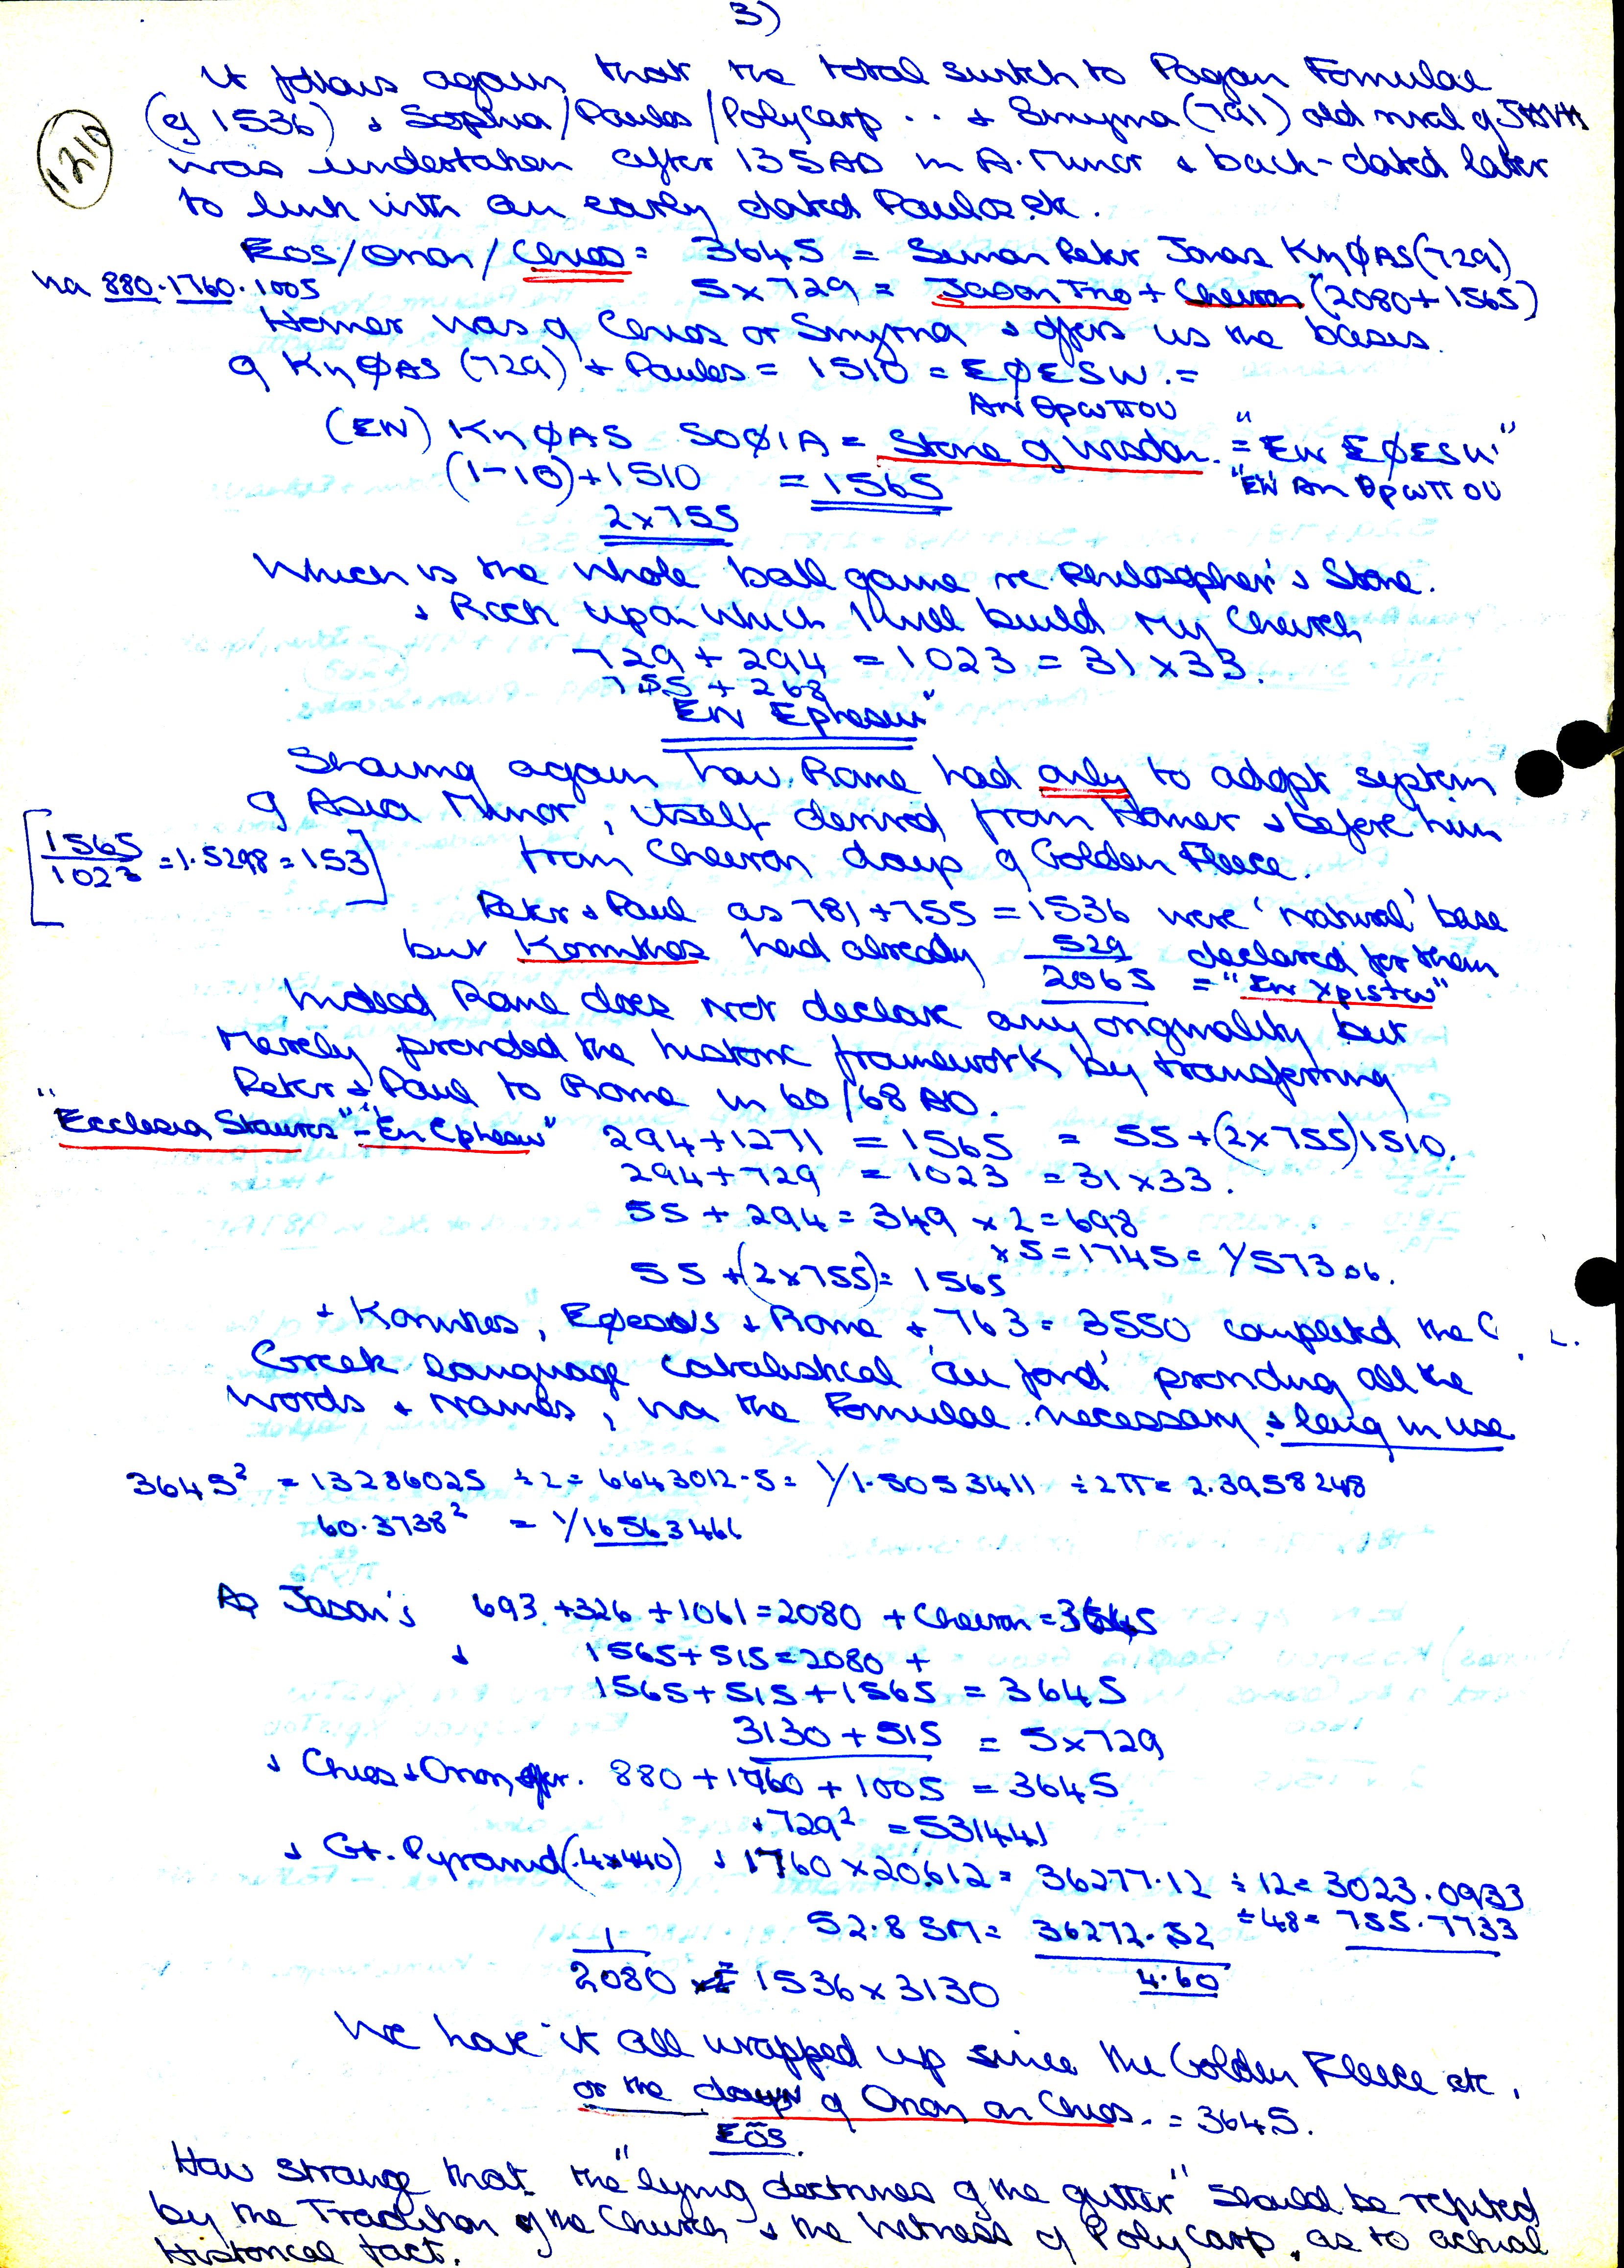 3)
It follows again, that the total switch to Pagan Formulae
(eg 1536) + Sophia/Paulos/Polycarp .. + Smyrna (791) old rival of JHVH
1210
was undertaken after 135 AD in A. Minor + back-dated later
to link with an early dated Paulos. etc.
EOS/Orion/Chios = 3645 = Simon Peter Jonas KηφAS (729)
via 880.1760.1005
5x729 = Jason Trio + Cheiron (2080+1565)
Homer was of Chios or Smyrna + offers us the bases.
of KηφAS (729) + Paulos = 1510 = ΕφESW. =
Ανθρωπου
(EN) KηφAS SOφIA = Stone of Wisdom. = "En ΕφESW"
(1-10)+1510 = 1565 "EN Ανθρωπου
2x755
Which is the whole ball game re Philosopher's Stone.
+ Rock upon which I will build My Church
729 + 294 = 1023 = 31 x 33.
755 + 268
"EN Ephesw"
Showing again how Rome had only to adopt system
of Asia Minor, itself derived from Homer + before him
[1565/1023 = 1.5298 = 153]
from Cheiron days of Golden Fleece.
Peter + Paul as 781+755 = 1536 were 'natural' base
but Korinthos had already 529 declared for them
2065 = "En Xpistw"
Indeed Rome does not declare any originality but
Merely provided the historic framework by transferring
Peter + Paul to Rome in 60/68 AD.
"Ecclesia Stauros" = "En Ephesw" 294+1271 = 1565 = 55+(2x755)1510.
294+729 = 1023 = 31x33.
55 + 294 = 349 x 2 = 698
x5 = 1745 = 1/573.06.
55 + (2x755) = 1565
+ Korinthos, Eφesos + Rome + 763 = 3550 completed the
Greek language cabalistical 'au fond' providing all the
words + names, via the Formulae necessary + long in use
3645² = 13286025 ÷2 = 6643012.5 = 1/1.5053411 ÷2π = 2.3958248
60.3738² = 1/16563466
As Jason's 693 + 326 + 1061 = 2080 + Cheiron = 3645
+ 1565+515 = 2080 +
1565 + 515 + 1565 = 3645
3130 + 515 = 5x729
+ Chios + Orion, offer. 880 + 1760 + 1005 = 3645
+ 729² = 531441
+ Gt. Pyramid (4x440) + 1760 x 20.612 = 36277.12 ÷ 12 = 3023.0933
52.8 SM = 36272.52 ÷48 = 755.7733
4.60
1/2080 = 1536 x 3130
We have it all wrapped up since the Golden Fleece etc.
or the days of Orion on Chios. = 3645.
EOS.
How strange that the "lying doctrines of the gutter" should be refuted
by the Tradition of the Church + the Witness of Polycarp, as to actual
Historical fact.